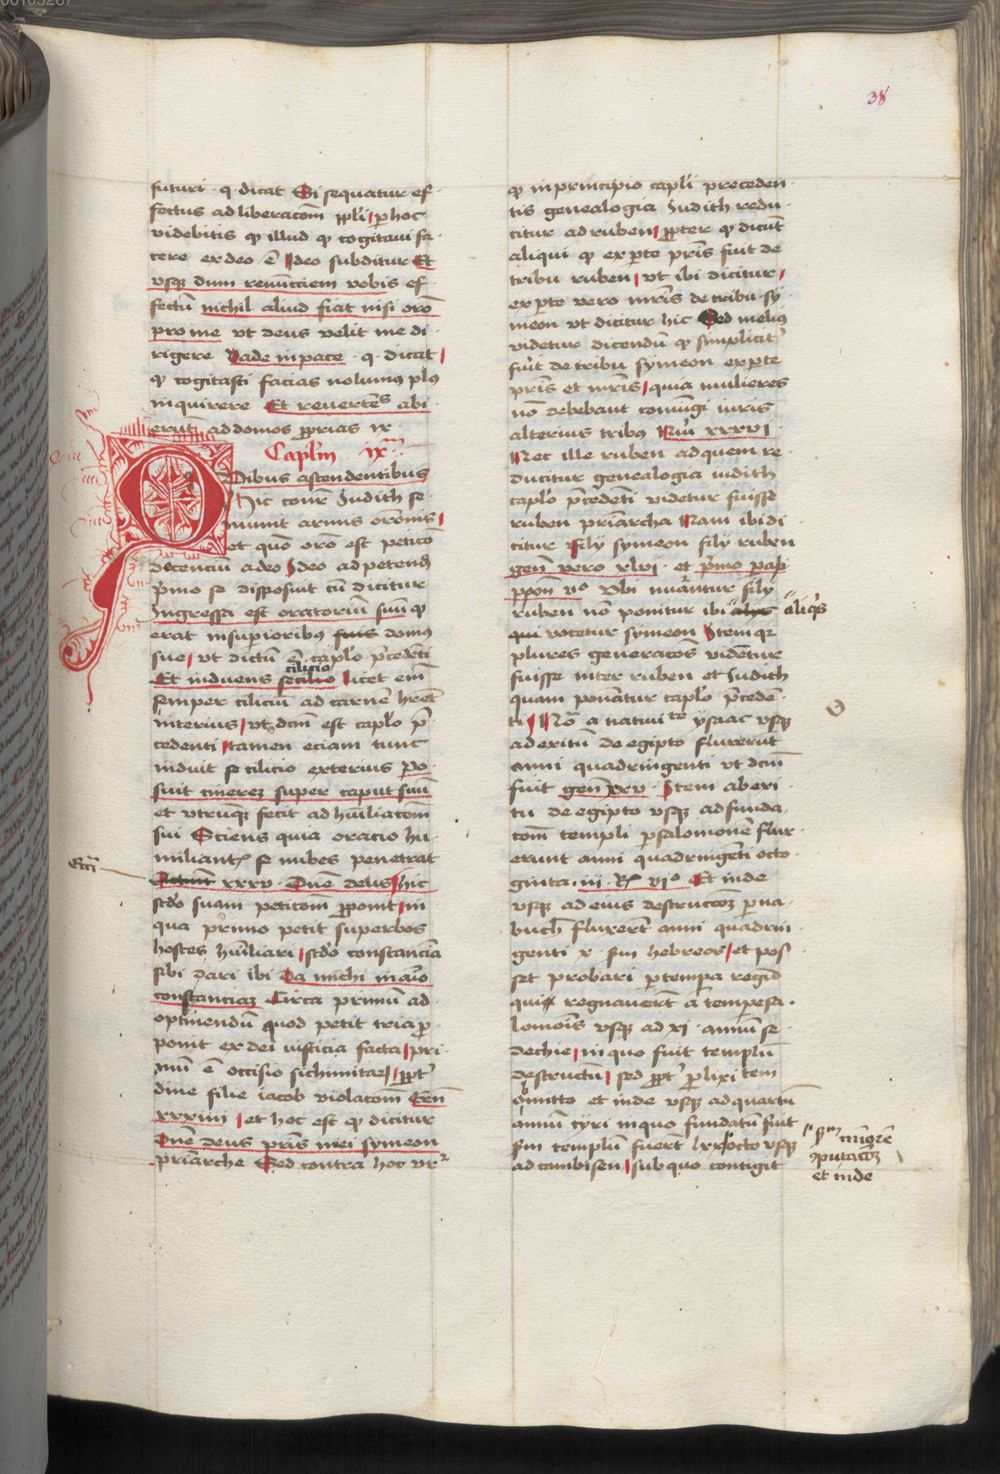 38
futuri · q · dicat Si sequatur ef
fectus ad liberacõm ppl̃i / p hoc
videbitis qͥ illud qͥ cogitaui fa
cere ex deo ẽ Ideo subditur Et
vsqꝫ dum renũcciem vobis ef
fectũ nichil aliud fiat nisi orõ
pro me vt deus velit me di
rigere Vade in pace · q · dicat
qͥ cogitasti facias nolumꝰ plꝰ
inquirere Et reuertẽs abi
erũt ad domos pprias ix
Capl̃m ix
Quibus ascendentibus
Hic cont̃r Judith se
muniit armis orõnis /
et quõ orõ est peticõ
decenciũ a deo Ideo ad petendũ
p̃mo se disposuit cũ dicitur
Ingressa est oratoriũ suũ qͥ
erat in supioribꝰ domꝰ
sue / vt dictũ ẽ caplo p̃cedẽti
cilicio
Et induens se licet em̃
semper ciliciũ ad carnẽ hr̃et
interius / vt dcm̃ est caplo p̃
cedenti / tamen eciam tunc
induit se cilicio exterius po
suit cinereꝫ super caput suũ
et vtrumqꝫ fecit ad hũiliacõm
sui Sciens quia oracio hu
miliantꝭ se nubes penetrat
Ecci
xxxv · Dñe deus / hic
scd̃o suam peticõm ppon̄it / in
qua primo petit superbos
hostes hũiliari / scd̃o constanciã
sibi dari ibi Da michi in aĩo
constanciaꝫ Circa primũ ad
optinendũ quod petit tria p
ponit ex dei iusticia facta / pri
mũ ẽ occisio sichimitaꝝ / ppt̃
dine filie iacob violacõm Gen̄
xxxiiii / et hoc est qͥ dicitur
Dñe deus pr̃is mei symeon
pr̃iarche Sed contra hoc vr̃
qͥ in principio capl̃i preceden
tis genealogia Judith redu
citur ad ruben / ppter qͥ dicũt
aliqui qͥ ex pte pr̃is fuit de
tribu ruben / vt ibi dicitur /
ex pte vero mr̃is de tribu sy
meon vt dicitur hic Sed meliꝰ
videtur dicendũ qͥ simplicit̃
fuit de tribu symeon ex pte
pr̃is et mr̃is / quia mulieres
nõ debebant coniũgi iuris
alterius tribꝰ Nũ xxxvi
Nec ille ruben ad quem re
ducitur genealogia iudith
caplo p̃cedẽti videtur fuisse
ruben pr̃iarcha Nam ibi di
citur filij symeon filij ruben
gen̄ vero xlvi · et p̃mo pap̄
ppon̄ vͦ Vbi nũantur filij
ruben nõ ponitur ibi aliqͥs
vocetur symeon Item qꝛ
plures generacões vidẽtur
fuisse inter ruben et Judith
quam ponãtur caplo p̃cedẽ
ti / Nã a natiuitͣte ysaac vsqꝫ
ad exitũ de egipto fluxerũt
anni quadringenti vt dcm̃
fuit gen̄ xxv · Item ab exi
tu de egipto vsqꝫ ad funda
cõm templi p salomonẽ flux
erunt anni quadringẽti octo
ginta · iii · Rͫ viͦ Et inde
vsqꝫ ad eius destruccõꝫ p na
buch̃ fluxerũt anni quadrin
genti x · s̃m hebreos / et pos
set probari p tempa regũ
qui regnauerũt a tempe sa
lomõis vsqꝫ ad xi · annũ se
dechie / in quo fuit templũ
destructũ / sed ppt̃ plixitatem
omitto et inde vsqꝫ ad quartũ
annũ cyri in quo fundatũ fuit
s̃m templũ fuerũt lxx vsqꝫ
ad cambisen / sub quo contigit
s̃m minorẽ
ꝯputacõꝫ
et inde